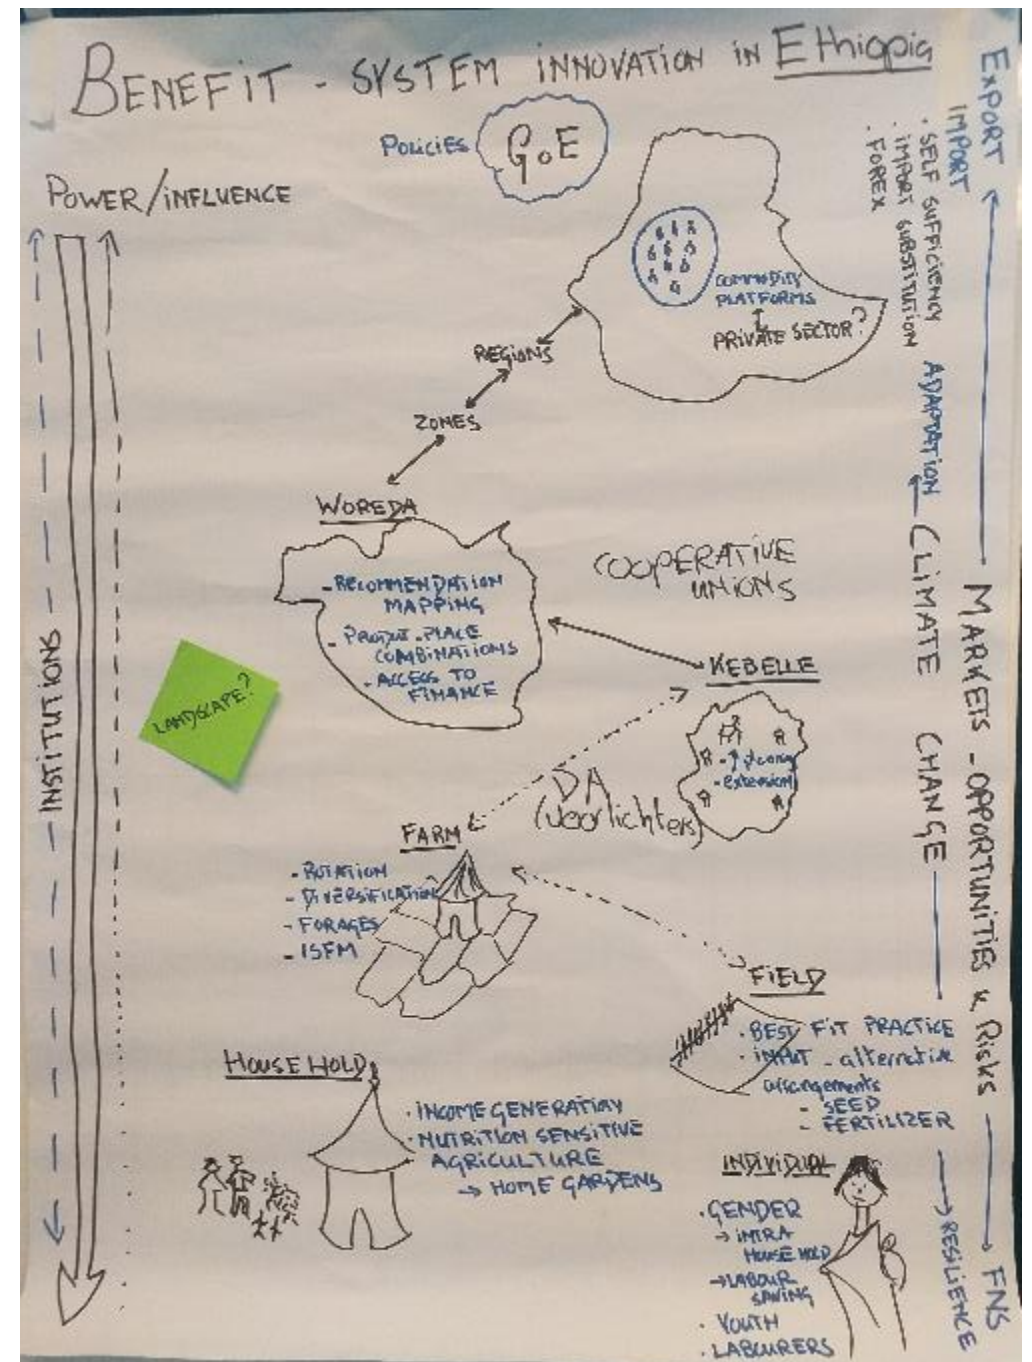 BENEFIT - SYSTEM INNOVATION IN Ethiopia
POLICIES
GoE
POWER/INFLUENCE
COMMODITY
PLATFORMS
PRIVATE SECTOR?
REGIONS
ZONES
WOREDA
- RECOMMENDATION
MAPPING
- PRODUCT-PLACE
COMBINATIONS
- ACCESS TO
FINANCE
COOPERATIVE
UNIONS
KEBELLE
- extension
DA
(voorlichters)
LANDSCAPE?
INSTITUTIONS
FARM
- ROTATION
- DIVERSIFICATION
- FORAGES
- ISFM
FIELD
• BEST FIT PRACTICE
• INPUT - alternative
arrangements
- SEED
- FERTILIZER
HOUSEHOLD
• INCOME GENERATION
• NUTRITION SENSITIVE
AGRICULTURE
→ HOME GARDENS
INDIVIDUAL
• GENDER
→ INTRA
HOUSEHOLD
→ LABOUR
SAVING
• YOUTH
• LABOURERS
EXPORT
IMPORT
• SELF SUFFICIENCY
• IMPORT SUBSTITUTION
• FOREX
ADAPTATION
CLIMATE CHANGE
RESILIENCE
MARKETS - OPPORTUNITIES & Risks
FNS